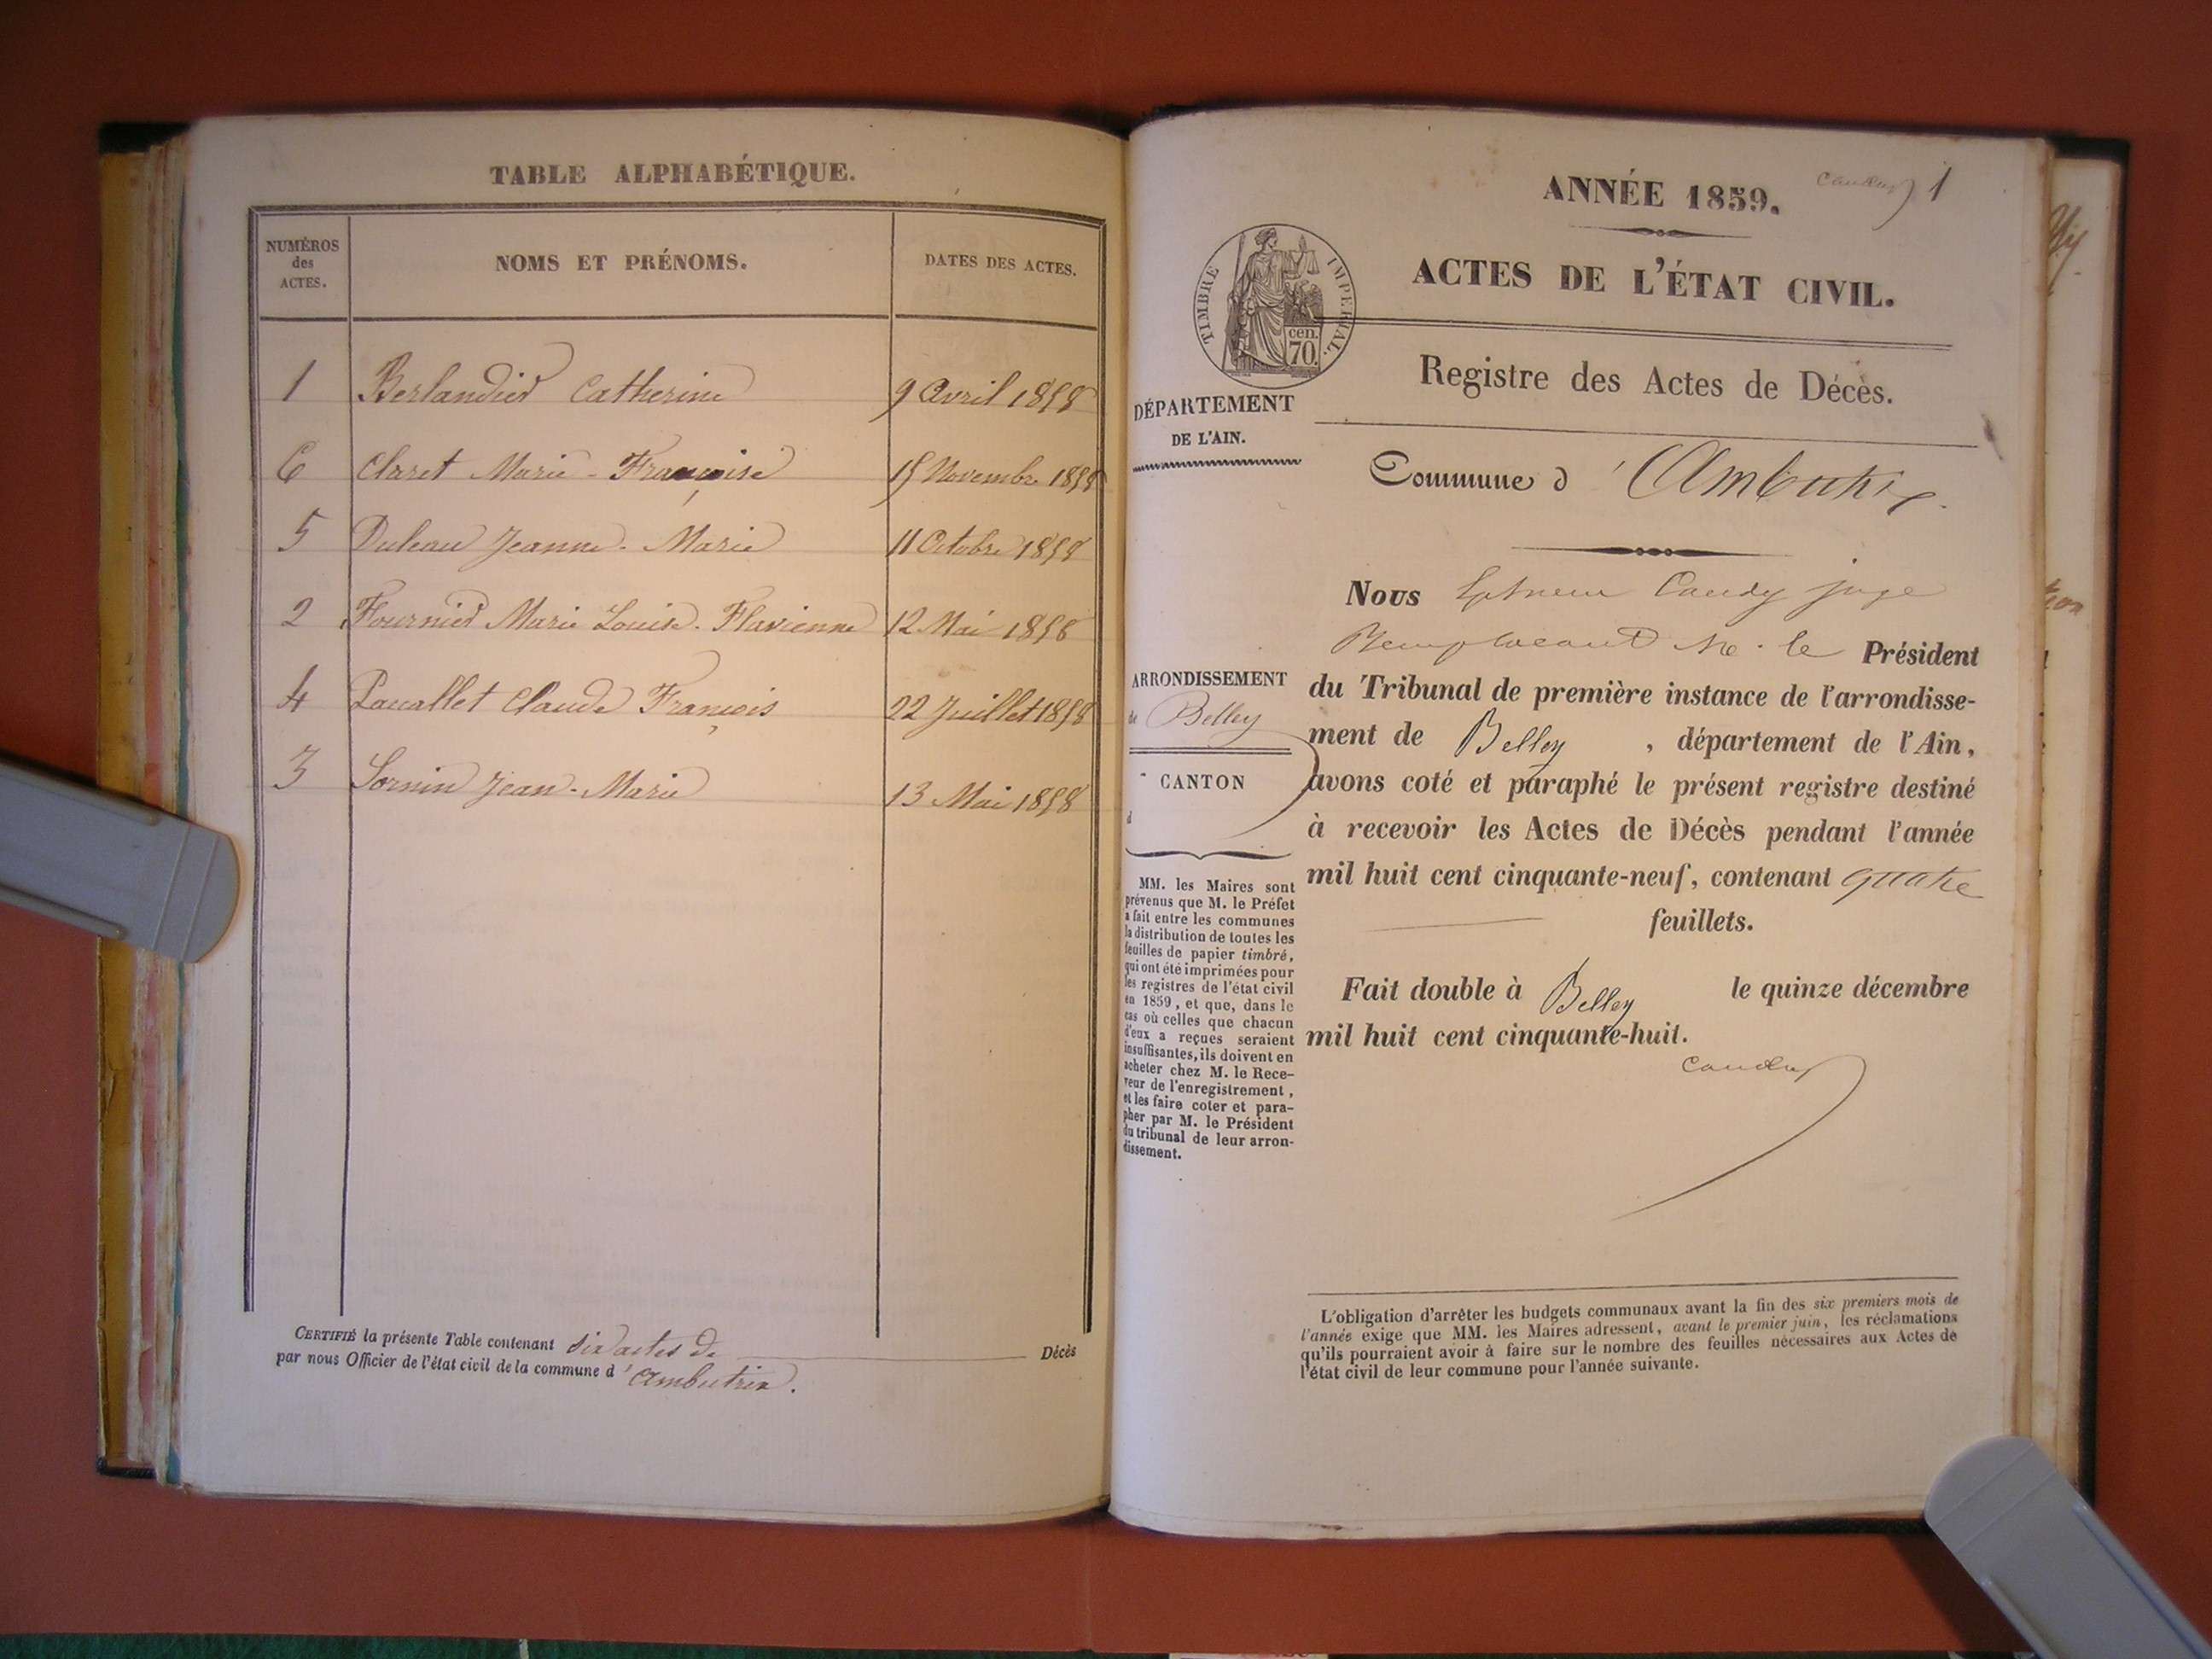 TABLE ALPHABÉTIQUE.
NUMÉROS des ACTES. NOMS ET PRÉNOMS. DATES DES ACTES.
1 Berlandier Catherine 9 Avril 1858
6 Claret Marie-Françoise 15 Novembre 1858
5 Duleau Jeanne-Marie 11 Octobre 1858
2 Fournier Marie Louise Flavienne 12 Mai 1858
4 Claude François 22 Juillet 1858
3 Sornin Jean-Marie 13 Mai 1858
CERTIFIÉ la présente Table contenant six actes de Décès
par nous Officier de l'état civil de la commune d'Ambutrix.
1
ANNÉE 1859.
ACTES DE L'ÉTAT CIVIL.
TIMBRE IMPERIAL.
cen.
70.
Registre des Actes de Décès.
DÉPARTEMENT
DE L'AIN.
Commune d'Ambutrix
Nous Caudy juge
Remplaçant M. le Président
du Tribunal de première instance de l'arrondisse-
ment de Belley, département de l'Ain,
avons coté et paraphé le présent registre destiné
à recevoir les Actes de Décès pendant l'année
mil huit cent cinquante-neuf, contenant quatre
feuillets.
Fait double à Belley le quinze décembre
mil huit cent cinquante-huit.
Caudy
ARRONDISSEMENT
de Belley
CANTON
d
MM. les Maires sont
prévenus que M. le Préfet
a fait entre les communes
la distribution de toutes les
feuilles de papier timbré,
qui ont été imprimées pour
les registres de l'état civil
en 1859, et que, dans le
cas où celles que chacun
d'eux a reçues seraient
insuffisantes, ils doivent en
acheter chez M. le Rece-
veur de l'enregistrement,
et les faire coter et para-
pher par M. le Président
du tribunal de leur arron-
dissement.
L'obligation d'arrêter les budgets communaux avant la fin des six premiers mois de
l'année exige que MM. les Maires adressent, avant le premier juin, les réclamations
qu'ils pourraient avoir à faire sur le nombre des feuilles nécessaires aux Actes de
l'état civil de leur commune pour l'année suivante.